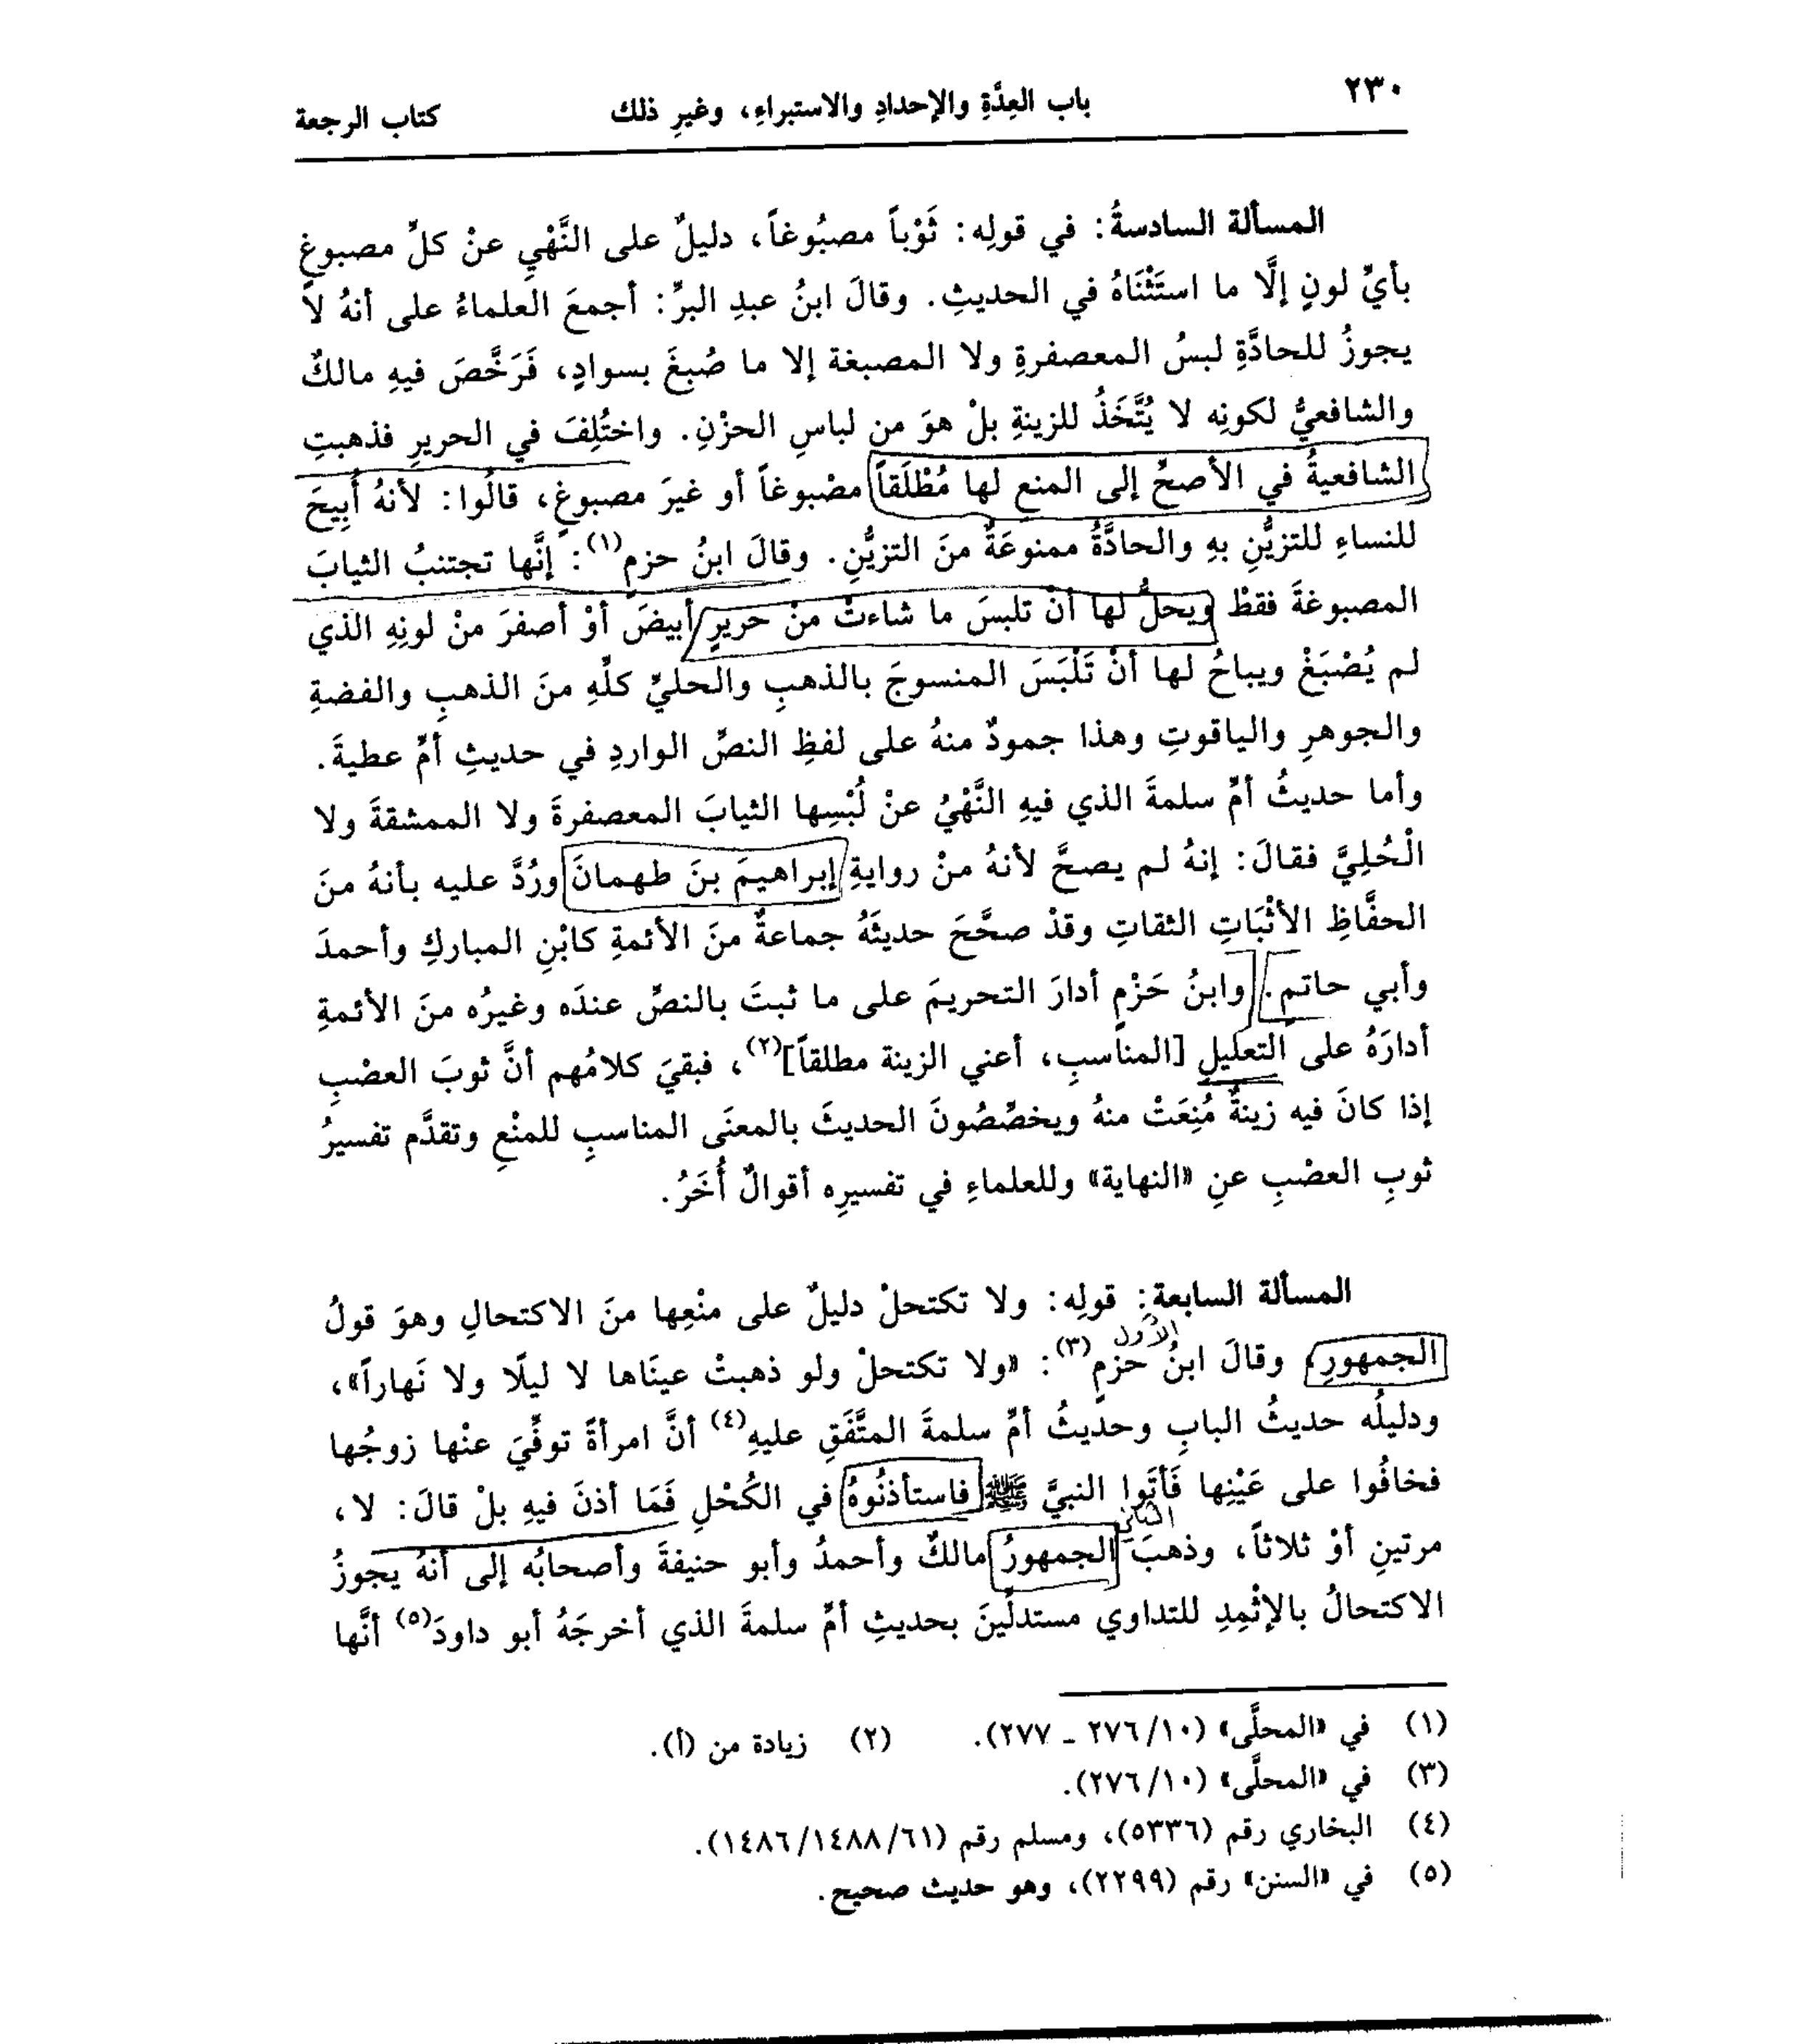 ٢٣٠ باب العِدَّةِ والإحدادِ والاستبراءِ، وغيرِ ذلك كتاب الرجعة
المسألة السادسةُ: في قولِه: ثَوْباً مصبُوغاً، دليلٌ على النَّهْيِ عنْ كلِّ مصبوغٍ
بأيِّ لونٍ إلَّا ما استَثْنَاهُ في الحديثِ. وقالَ ابنُ عبدِ البرِّ: أجمعَ العلماءُ على أنهُ لا
يجوزُ للحادَّةِ لبسُ المعصفرةِ ولا المصبغة إلا ما صُبِغَ بسوادٍ، فَرَخَّصَ فيهِ مالكٌ
والشافعيُّ لكونِه لا يُتَّخَذُ للزينةِ بلْ هوَ من لباسِ الحزْنِ. واختُلِفَ في الحريرِ فذهبتِ
الشافعيةُ في الأصحِّ إلى المنعِ لها مُطْلَقاً مصْبوغاً أو غيرَ مصبوغٍ، قالُوا: لأنهُ أُبِيحَ
للنساءِ للتزيُّنِ بهِ والحادَّةُ ممنوعَةٌ منَ التزيُّنِ. وقالَ ابنُ حزمٍ(١): إنَّها تجتنبُ الثيابَ
المصبوغةَ فقطْ ويحلُّ لها أنْ تلبسَ ما شاءتْ منْ حريرٍ أبيضَ أوْ أصفرَ منْ لونِهِ الذي
لم يُصْبَغْ ويباحُ لها أنْ تَلْبَسَ المنسوجَ بالذهبِ والحليِّ كلِّهِ منَ الذهبِ والفضةِ
والجوهرِ والياقوتِ وهذا جمودٌ منهُ على لفظِ النصِّ الواردِ في حديثِ أمِّ عطيةَ.
وأما حديثُ أمِّ سلمةَ الذي فيهِ النَّهْيُ عنْ لُبْسِها الثيابَ المعصفرةَ ولا الممشقةَ ولا
الْحُلِيَّ فقالَ: إنهُ لم يصحَّ لأنهُ منْ روايةِ إبراهيمَ بنَ طهمانَ ورُدَّ عليه بأنهُ منَ
الحفَّاظِ الأثْبَاتِ الثقاتِ وقدْ صحَّحَ حديثَهُ جماعةٌ منَ الأئمةِ كابْنِ المباركِ وأحمدَ
وأبي حاتمٍ. وابنُ حَزْمٍ أدارَ التحريمَ على ما ثبتَ بالنصِّ عندَه وغيرُه منَ الأئمةِ
أدارَهُ على التعليلِ [المناسبِ، أعني الزينة مطلقاً](٢)، فبقيَ كلامُهم أنَّ ثوبَ العصْبِ
إذا كانَ فيه زينةٌ مُنِعَتْ منهُ ويخصِّصُونَ الحديثَ بالمعنَى المناسبِ للمنْعِ وتقدَّم تفسيرُ
ثوبِ العصْبِ عنِ «النهاية» وللعلماءِ في تفسيرِه أقوالٌ أُخَرُ.
المسألة السابعةِ: قولِه: ولا تكتحلْ دليلٌ على منْعِها منَ الاكتحالِ وهوَ قولُ
الأول
الجمهورِ، وقالَ ابنُ حزمٍ(٣): «ولا تكتحلْ ولو ذهبتْ عينَاها لا ليلًا ولا نَهاراً»،
ودليلُه حديثُ البابِ وحديثُ أمِّ سلمةَ المتَّفَقِ عليهِ(٤) أنَّ امرأةً توفِّيَ عنْها زوجُها
فخافُوا على عَيْنِها فَأَتَوا النبيَّ ﷺ فاستأذنُوهُ في الكُحْلِ فَمَا أذنَ فيهِ بلْ قالَ: لا،
الثاني
مرتينِ أوْ ثلاثاً، وذهبَ الجمهورُ مالكٌ وأحمدُ وأبو حنيفةَ وأصحابُه إلى أنهُ يجوزُ
الاكتحالُ بالإثْمِدِ للتداوي مستدلِّينَ بحديثِ أمِّ سلمةَ الذي أخرجَهُ أبو داودَ(٥) أنَّها
(١) في «المحلَّى» (١٠/ ٢٧٦ ـ ٢٧٧). (٢) زيادة من (أ).
(٣) في «المحلَّى» (١٠/ ٢٧٦).
(٤) البخاري رقم (٥٣٣٦)، ومسلم رقم (٦١/ ١٤٨٨/ ١٤٨٦).
(٥) في «السنن» رقم (٢٢٩٩)، وهو حديث صحيح.